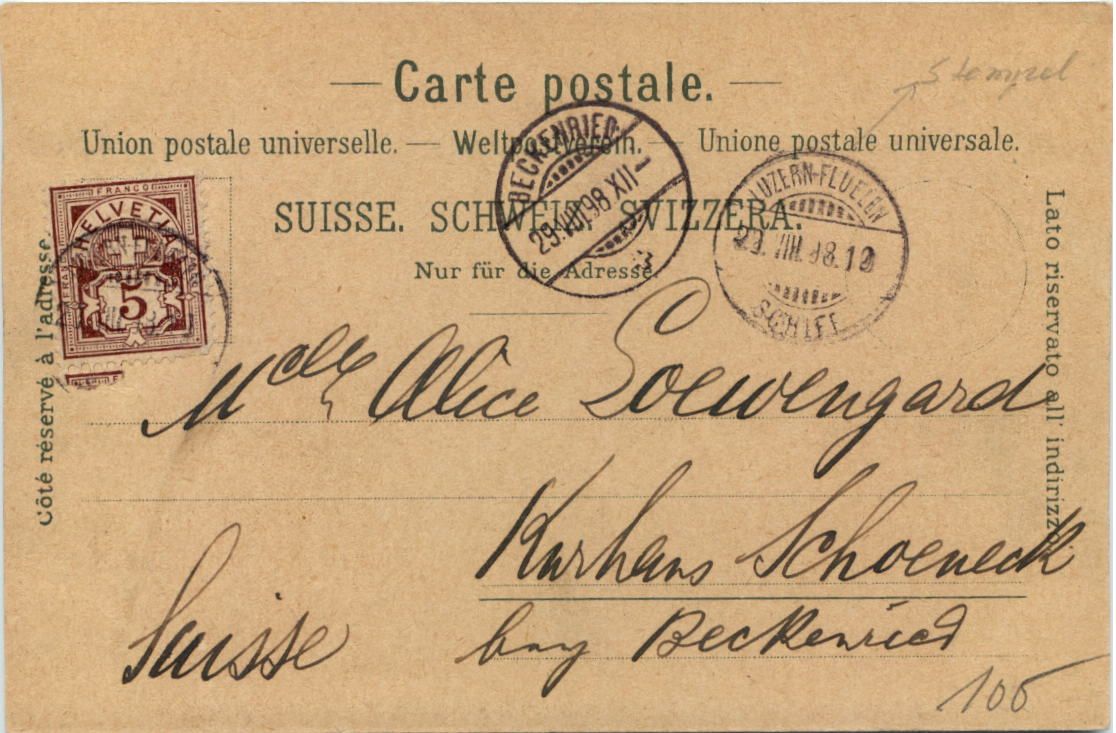 Stempel
Carte postale.
Union postale universelle. — Weltpostverein. — Unione postale universale.
SUISSE. SCHWEIZ. SVIZZERA.
Nur für die Adresse.
Côté réservé à l'adresse.
Lato riservato all' indirizzo.
FRANCO
HELVETIA
5
BECKENRIED
29.VIII.98.XII–
LUZERN-FLUELEN
29.VIII.98.12
SCHIFF
Melle Alice Loewengard
Kurhaus Schoeneck
bey Beckenried
Suisse
106